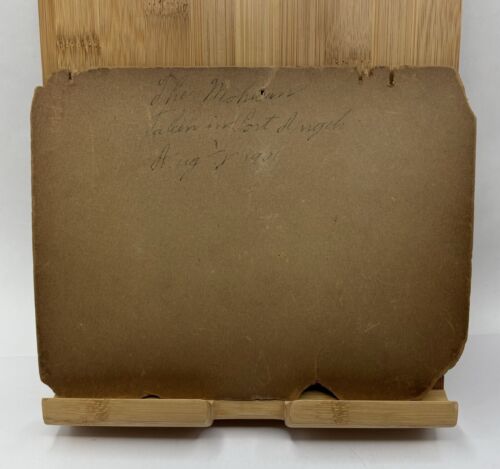 The Mohican
taken in Port Angeles
Aug